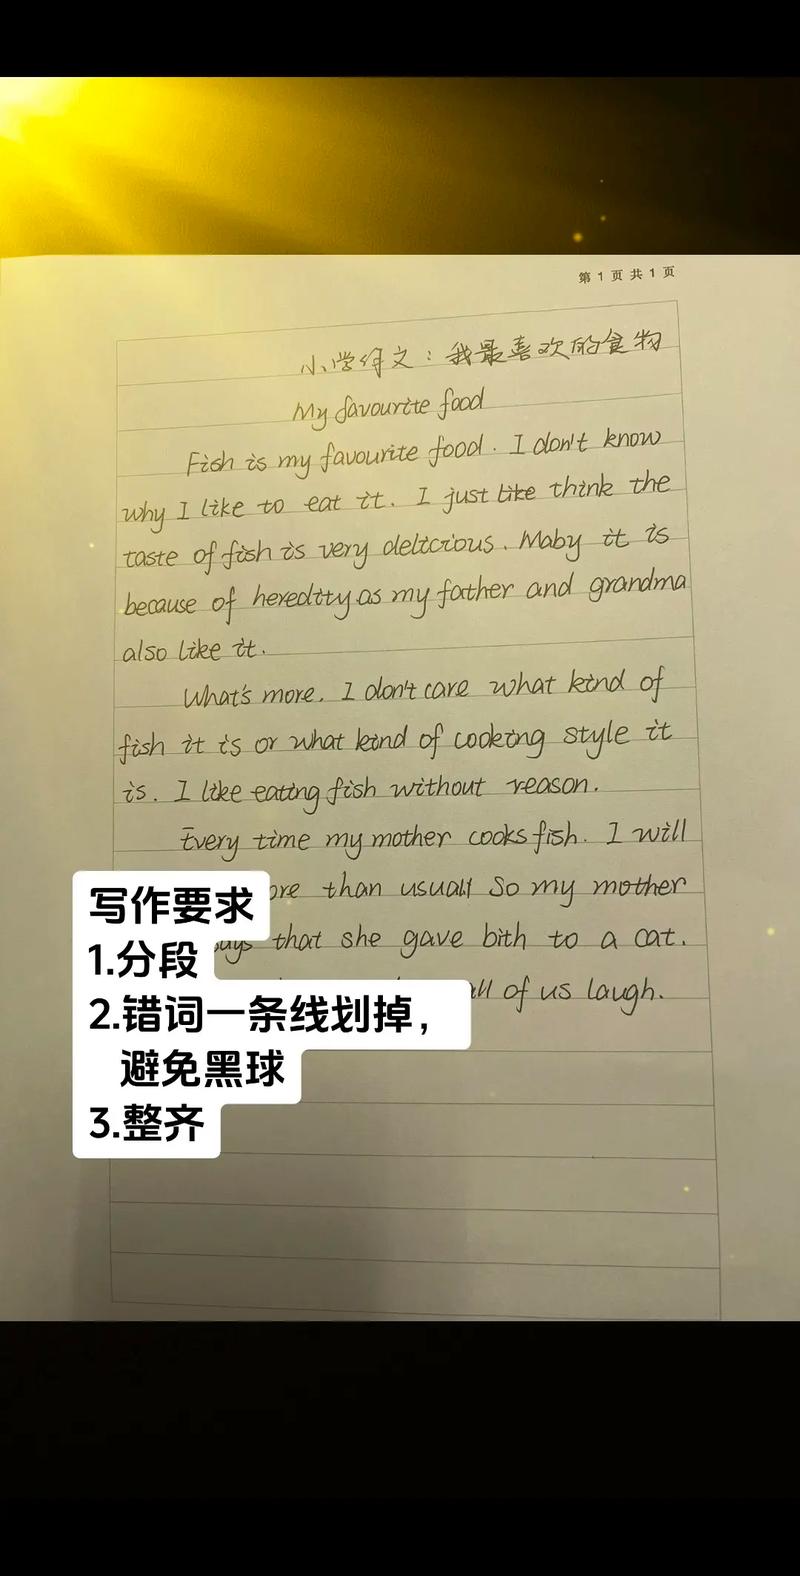 第 1 页 共 1 页
小学作文：我最喜欢的食物
My favourite food
Fish is my favourite food. I don't know
why I like to eat it. I just like think the
taste of fish is very delicious. Maby it is
because of heredity as my father and grandma
also like it.
What's more. I don't care what kind of
fish it is or what kind of cooking style it
is. I like eating fish without reason.
Every time my mother cooks fish. I will
than usual So my mother
that she gave bith to a cat.
all of us laugh.
写作要求
1.分段
2.错词一条线划掉，
避免黑球
3.整齐